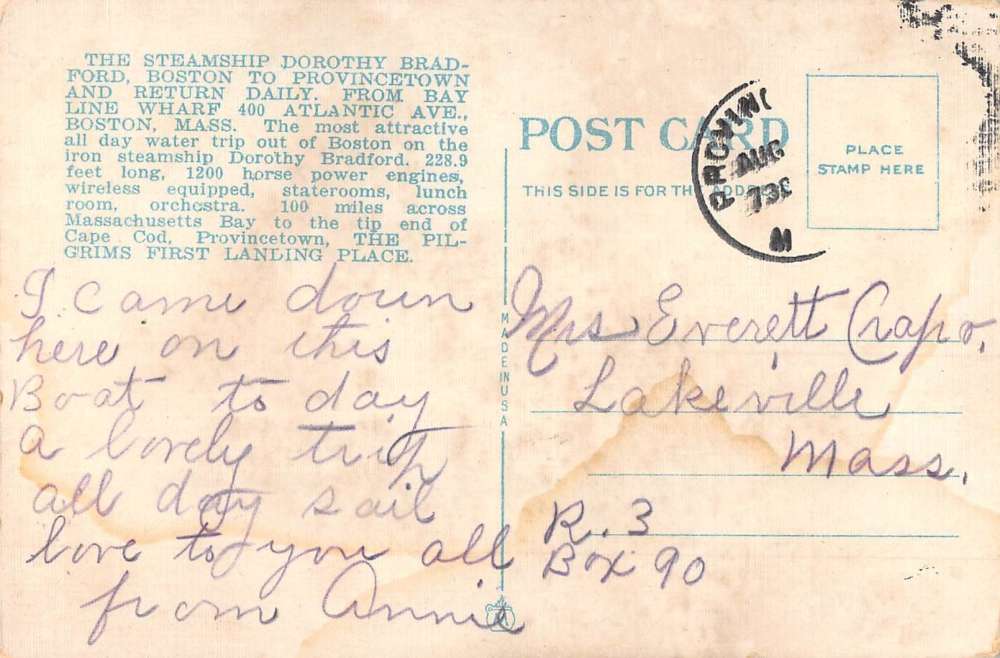 THE STEAMSHIP DOROTHY BRAD-
FORD, BOSTON TO PROVINCETOWN
AND RETURN DAILY. FROM BAY
LINE WHARF 400 ATLANTIC AVE.,
BOSTON, MASS. The most attractive
all day water trip out of Boston on the
iron steamship Dorothy Bradford. 228.9
feet long, 1200 horse power engines,
wireless equipped, staterooms, lunch
room, orchestra. 100 miles across
Massachusetts Bay to the tip end of
Cape Cod, Provincetown, THE PIL-
GRIMS FIRST LANDING PLACE.
I came down
here on this
Boat to day
a lovely trip
all day sail
love to you all
from Annie
MADE IN USA
POST CARD
THIS SIDE IS FOR THE ADD
PROVINC
AUG
M
PLACE
STAMP HERE
Mrs Everett Crapo,
Lakeville
Mass.
R. 3
Box 90